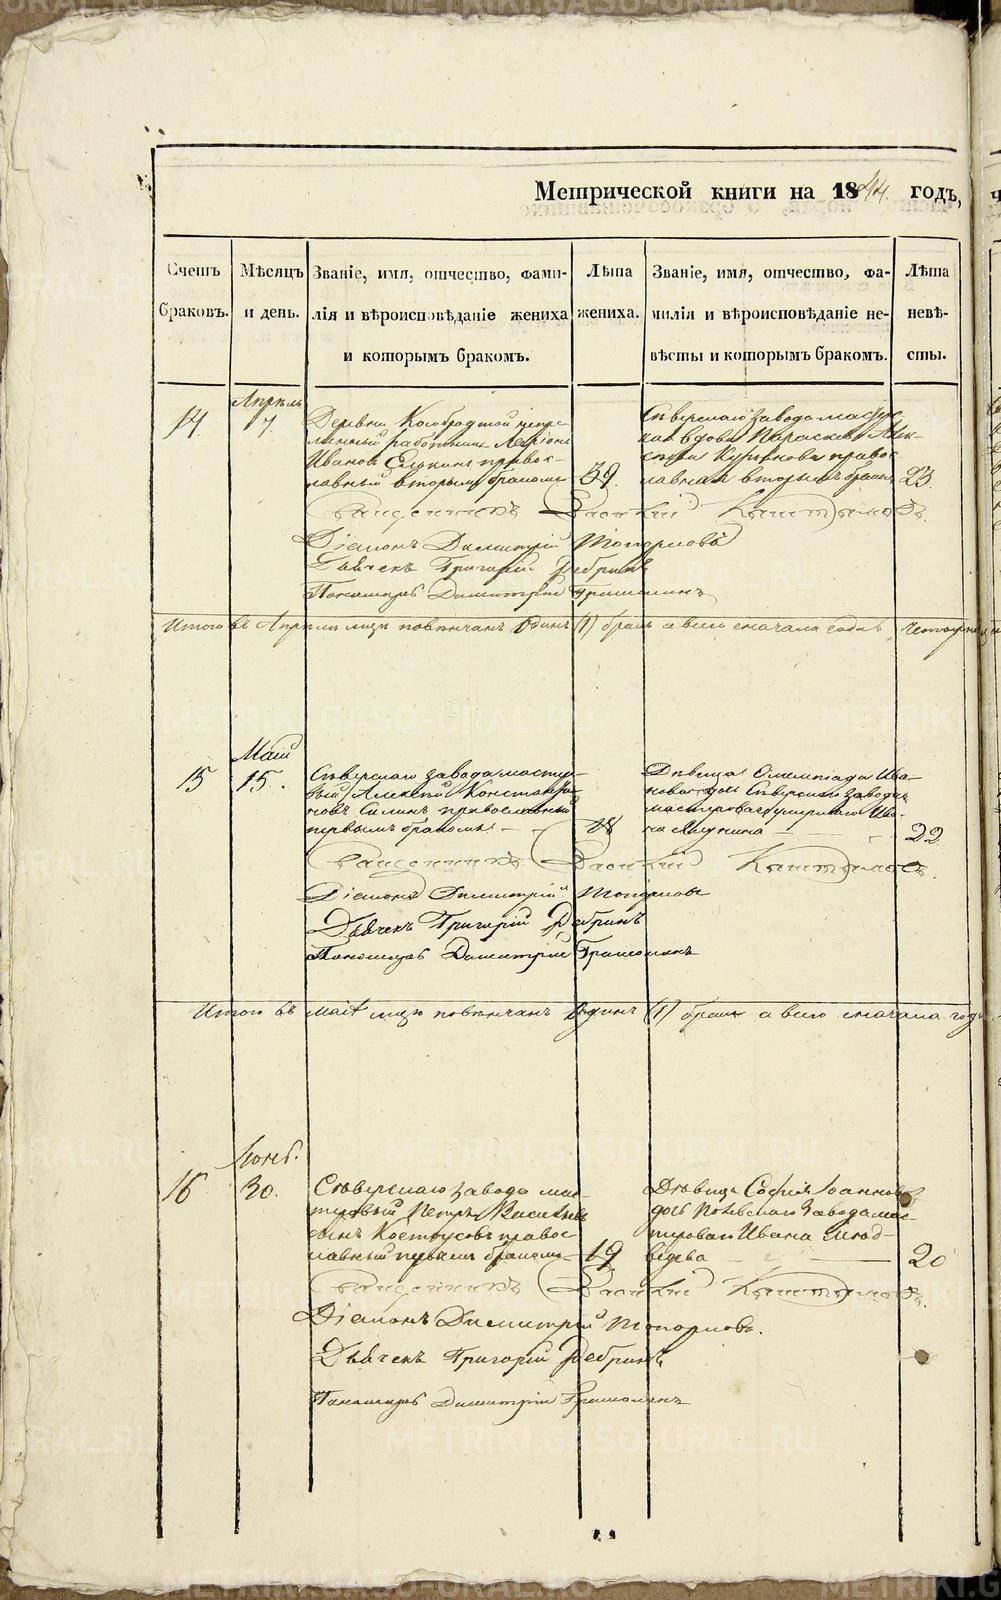 Метрической книги на 1844. годъ,
Счетъ браковъ.
Мѣсяцъ и день.
Званіе, имя, отчество, фами-
лія и вѣроисповѣданіе жениха
и которымъ бракомъ.
Лѣта жениха.
Званіе, имя, отчество, фа-
милія и вѣроисповѣданіе не-
вѣсты и которымъ бракомъ.
Лѣта невѣ-
сты.
Апрѣль
14.
7.
Деревни Кособродской
работникъ
Ивановъ православ-
лавный вторымъ бракомъ
39.
Сѣверскаго завода мастерс-
кая вдова Параскева Алек-
сѣева правос-
лавная вторымъ бракомъ
23.
Священникъ Василій Кыштымовъ.
Діаконъ Димитрій Топорковъ
Дьячекъ Григорій Ребринъ
Пономарь Димитрій
Итого въ Апрѣлѣ мцѣ повѣнчанъ Одинъ (1) бракъ а всего сначала года
Маій
15
15.
Сѣверскаго завода мастер-
вый Алексѣй Константи-
новъ Силинъ православный
первымъ бракомъ
18
Дѣвица Олимпіада Ива-
нова дочь Сѣверскаго завода
мастероваго умершаго Ива-
на
22
Священникъ Василій Кыштымовъ.
Діаконъ Димитрій Топорковъ
Дьячекъ Григорій Ребринъ
Пономарь Димитрій
Итого въ маіѣ мцѣ повѣнчанъ Одинъ (1) бракъ а всего сначала года
16
30.
Сѣверскаго завода мас-
теровый Петръ Васильевъ
сынъ Костоусовъ правос-
лавный первымъ бракомъ
19
Дѣвица Софія Іоаннова
дочь Полевскаго завода мас-
тероваго Ивана Медв-
ѣдева
20
Священникъ Василій Кыштымовъ.
Діаконъ Димитрій Топорковъ.
Дьячекъ Григорій Ребринъ
Пономарь Димитрій
METRIKI.GASO-URAL.RU